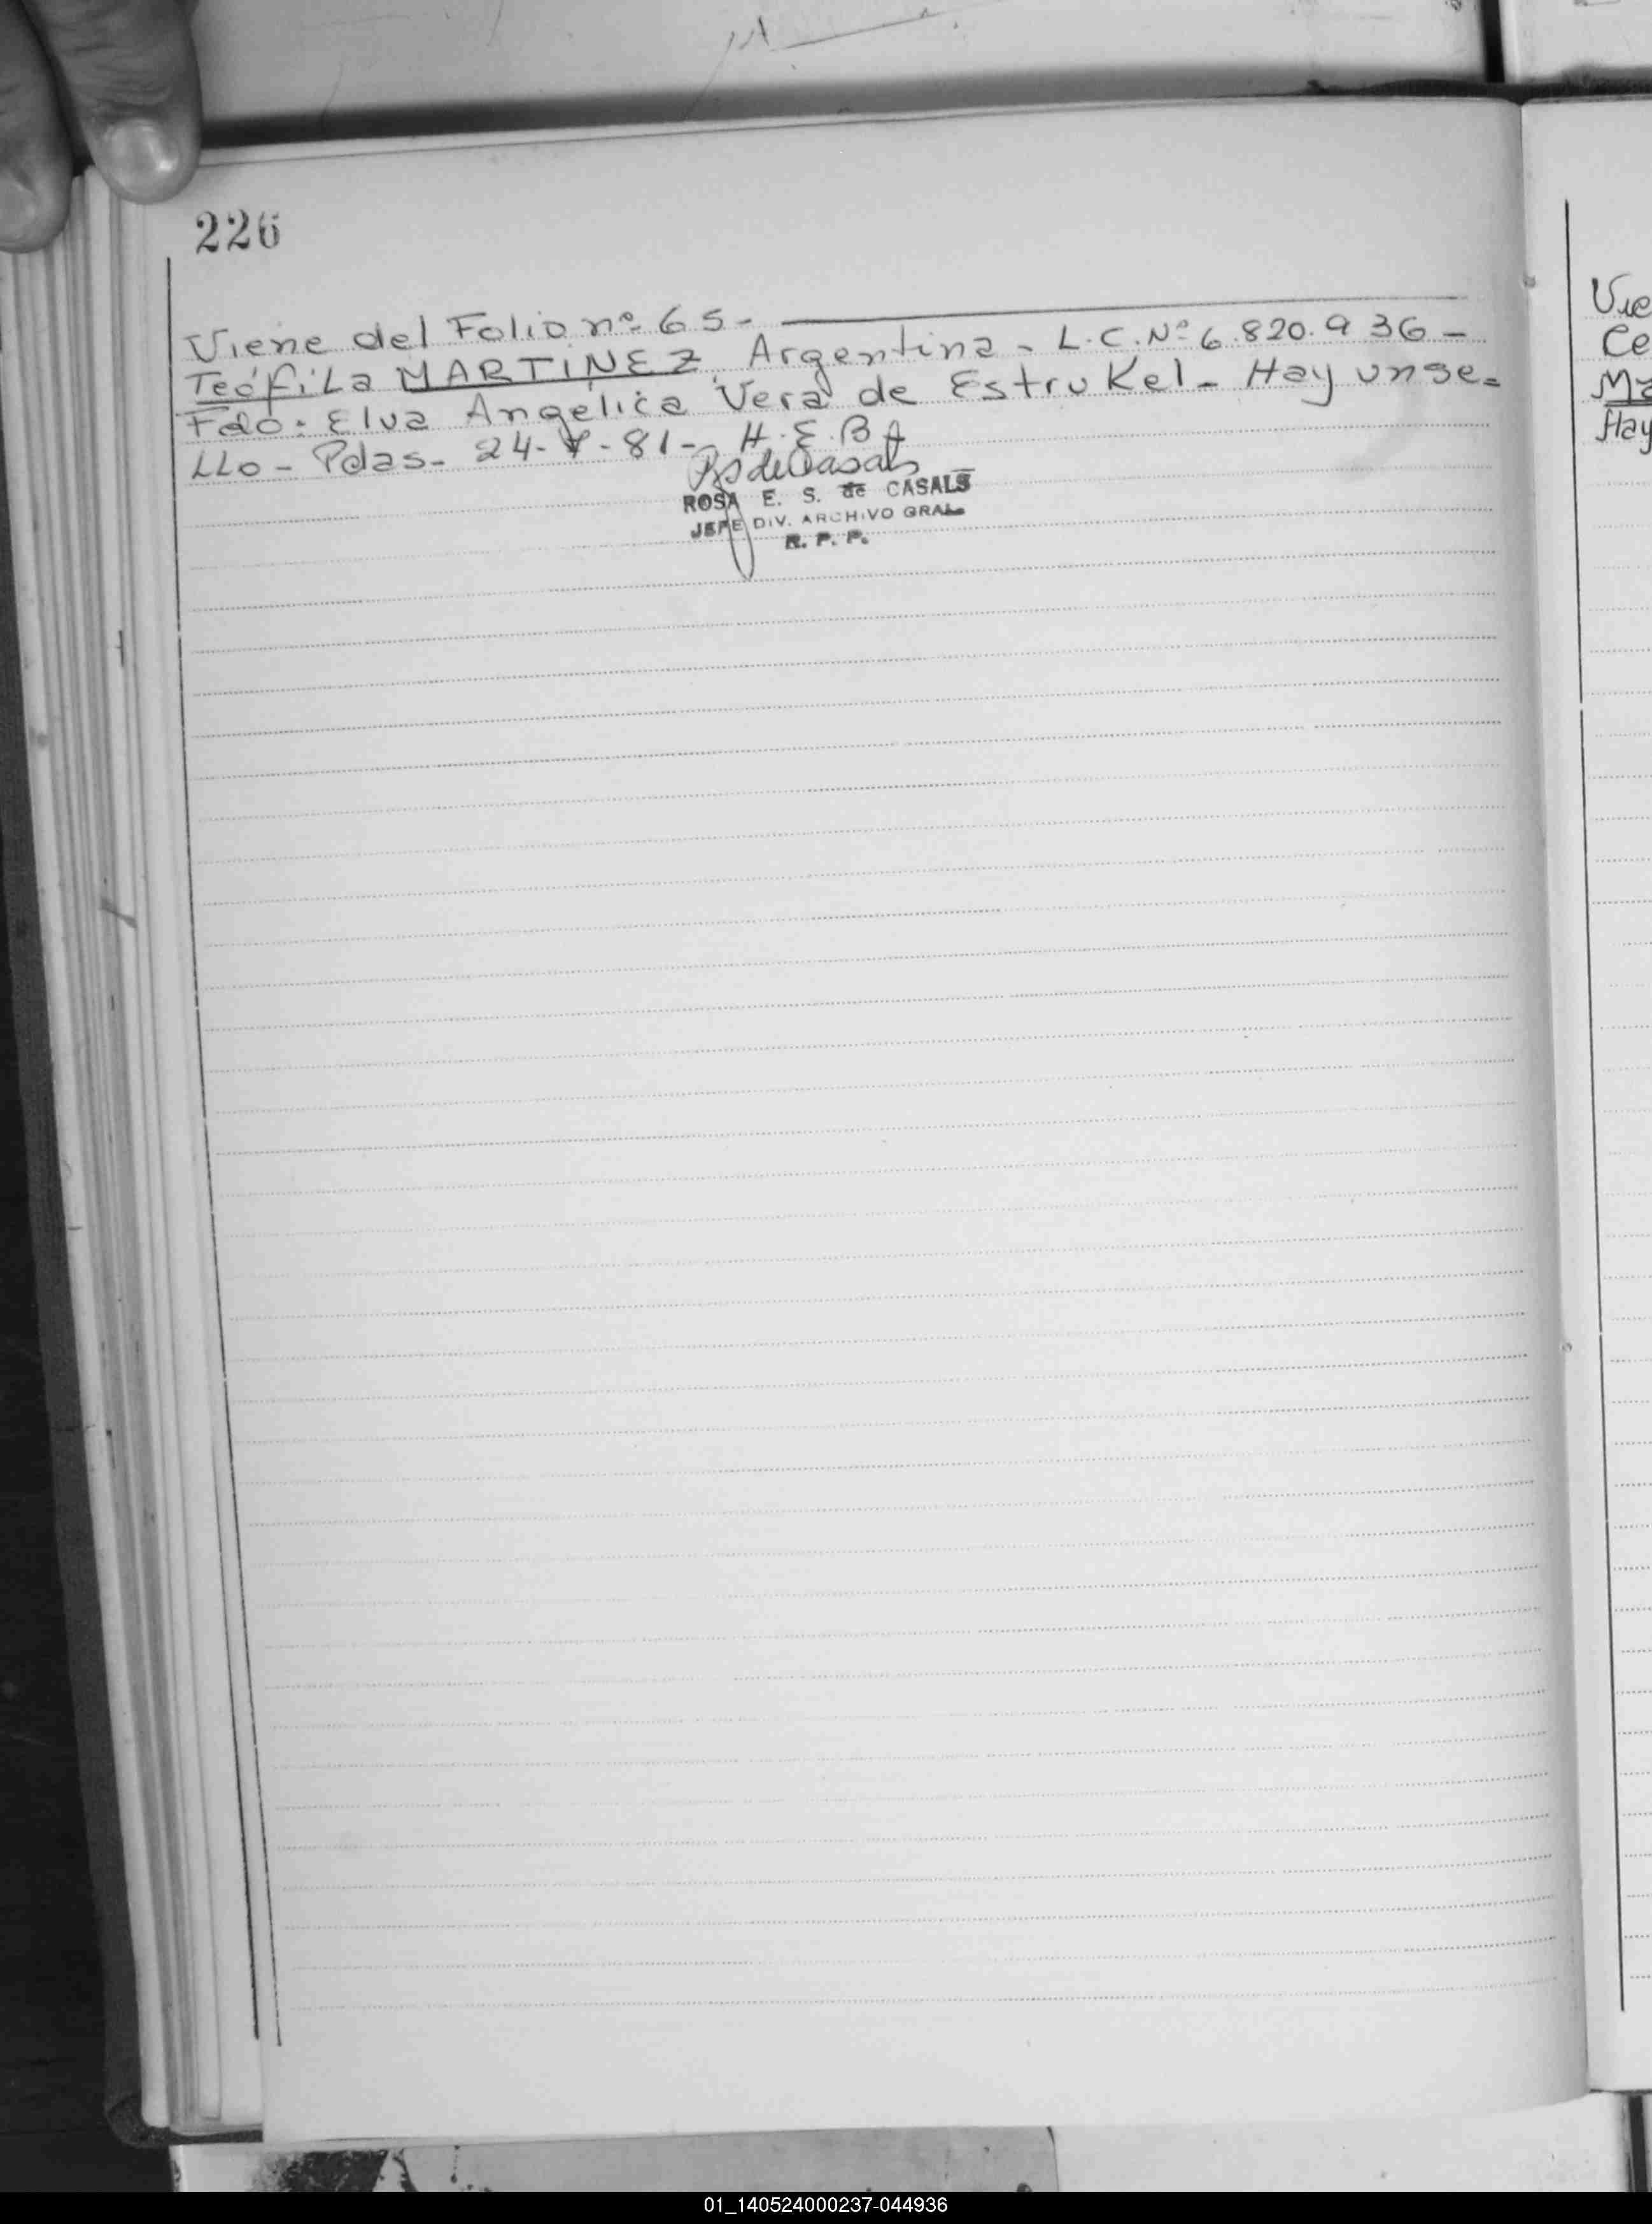 226
Viene del Folio nº 65-
Teófila MARTINEZ, Argentina - L.C.Nº 6.820.936-
Fdo: Elva Angelica Vera de Estrukel - Hay un se=
llo - Pdas- 24-V-81- H.E.B A
RS de Casals
ROSA E. S. de CASALS
JEFE DIV. ARCHIVO GRAL
R. P. P.
Vie
Ce
Ma
Hay
01_140524000237-044936